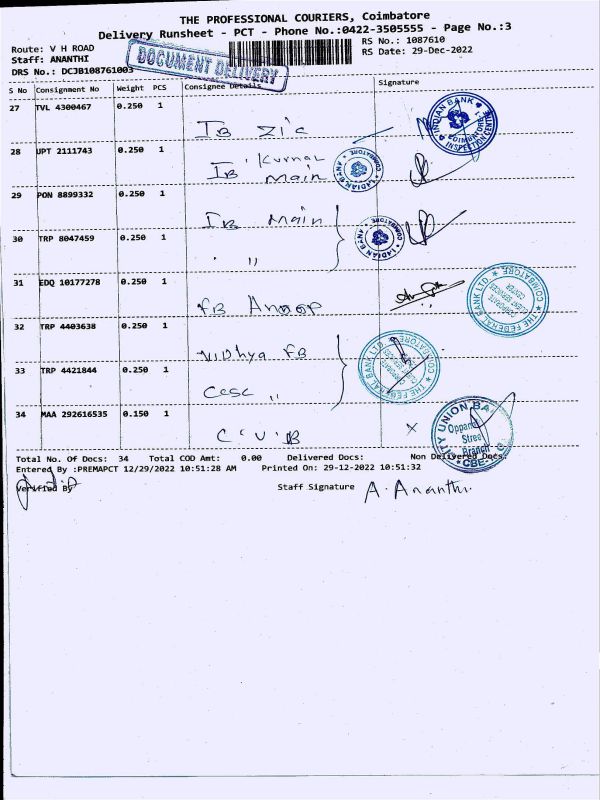 THE PROFESSIONAL COURIERS, Coimbatore
Delivery Runsheet - PCT - Phone No.:0422-3505555 - Page No.:3
Route: V H ROAD
RS No.: 1087610
Staff: ANANTHI
RS Date: 29-Dec-2022
DRS No.: DCJB108761003
DOCUMENT DELIVERY
S No Consignment No Weight PCS Consignee Details Signature
27 TVL 4300467 0.250 1
IB
INDIAN BANK COIMBATORE INSPECTION CENTRE
28 UPT 2111743 0.250 1
IB Main
INDIAN BANK COIMBATORE
29 PON 8899332 0.250 1
IB Main
30 TRP 8047459 0.250 1
" "
INDIAN BANK COIMBATORE
31 EDQ 10177278 0.250 1
FB Anoop
THE FEDERAL BANK LTD. COIMBATORE
32 TRP 4403638 0.250 1
Vidhya FB
33 TRP 4421844 0.250 1
THE FEDERAL BANK LTD. COIMBATORE
34 MAA 292616535 0.150 1
C U B
CITY UNION BANK Oppanakara Street Branch CBE-
Total No. Of Docs: 34 Total COD Amt: 0.00 Delivered Docs: Non Delivered Docs:
Entered By :PREMAPCT 12/29/2022 10:51:28 AM Printed On: 29-12-2022 10:51:32
Verified By
Staff Signature A. Ananthi.